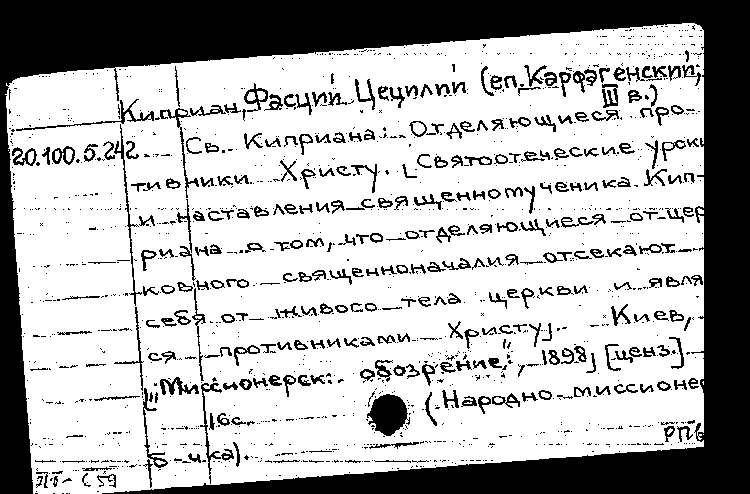 Киприан, Фасций Цецилий (еп. Карфагенский;
III в.)
20.100.5.242 Св. Киприана: Отделяющиеся про-
тивники Христу. [Святоотеческие уроки
и наставления священномученика Кип-
риана о том, что отделяющиеся от цер
ковного священноначалия отсекают
себя от живого тела церкви и явля
ся противниками Христу]. Киев,
["Миссионерск. обозрение", 1898] [ценз.]
16с. (Народно-миссионер
б-ика).
РПБ